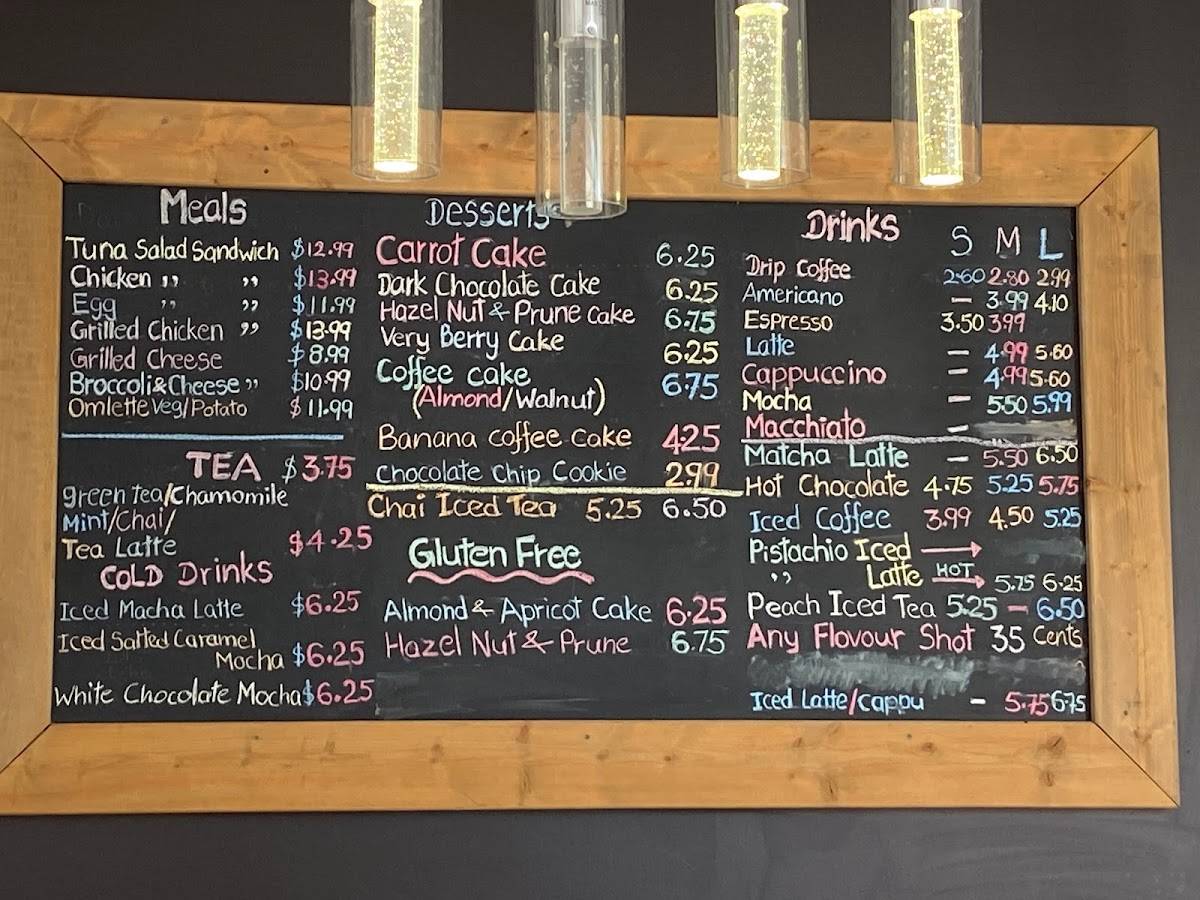 Meals
Tuna Salad Sandwich $12.99
Chicken ,, ,, $13.99
Egg ,, ,, $11.99
Grilled Chicken ,, $13.99
Grilled Cheese $8.99
Broccoli & Cheese ,, $10.99
Omlette Veg/Potato $11.99
TEA $3.75
green tea/Chamomile
Mint/Chai/
Tea Latte $4.25
COLD Drinks
Iced Macha Latte $6.25
Iced Salted Caramel
Mocha $6.25
White Chocolate Mocha $6.25
Desserts
Carrot Cake 6.25
Dark Chocolate Cake 6.25
Hazel Nut & Prune Cake 6.75
Very Berry Cake 6.25
Coffee cake 6.75
(Almond/Walnut)
Banana coffee cake 4.25
Chocolate Chip Cookie 2.99
Chai Iced Tea 5.25 6.50
Gluten Free
Almond & Apricot Cake 6.25
Hazel Nut & Prune 6.75
Drinks S M L
Drip Coffee 2.60 2.80 2.99
Americano — 3.99 4.10
Espresso 3.50 3.99
Latte — 4.99 5.60
Cappuccino — 4.99 5.60
Mocha — 5.50 5.99
Macchiato —
Matcha Latte — 5.50 6.50
Hot Chocolate 4.75 5.25 5.75
Iced Coffee 3.99 4.50 5.25
Pistachio Iced →
,, Latte HOT → 5.75 6.25
Peach Iced Tea 5.25 — 6.50
Any Flavour Shot 35 Cents
Iced Latte/Cappu — 5.75 6.75